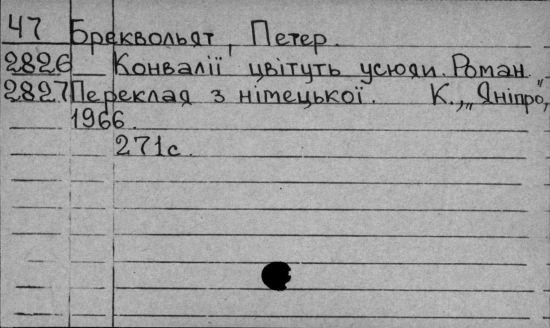 47 Бреквольят, Петер.
2826 Конвалії цвітуть усюди. Роман.
2827 Переклад з німецької. К., „Дніпро",
1966.
271с.